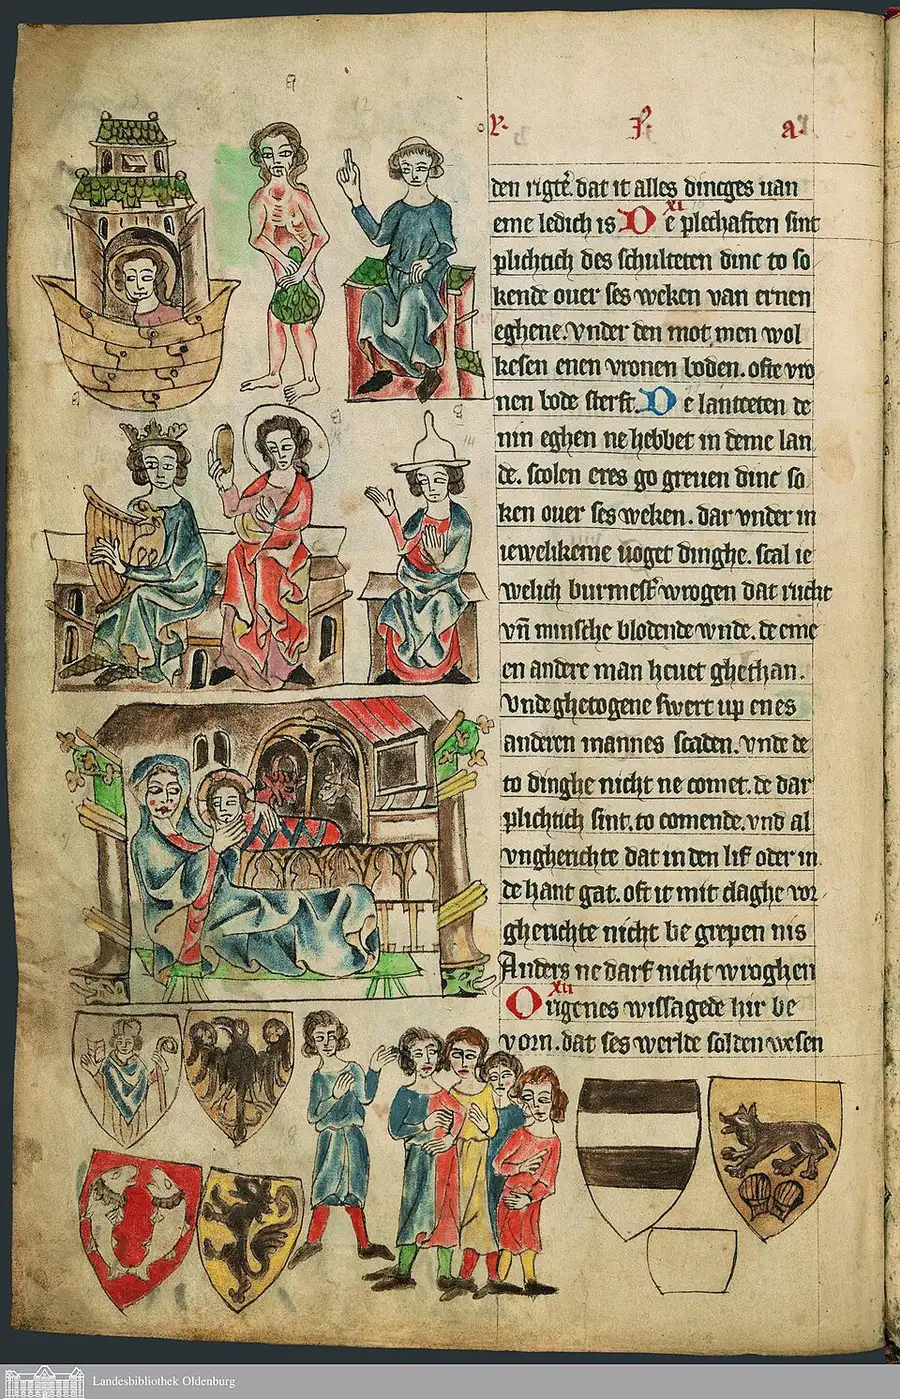 den rigtē. dat it alles dincges uan
eme ledich is
XI
De plechaften sint
plichtich des schulteten dinc to so
kende ouer ses weken van ernen
eghene. vnder den mot men wol
kesen enen vronen boden. ofte vro
nen bode sterft. De lantteten de
nin eghen ne hebbet in deme lan
de. scolen eres go greuen dinc so
ken ouer ses weken. dar vnder in
iewelikeme uoget dinghe. scal ie
welich burmest wrogen dat rucht
vn̄ minsche blodende wnde. de eme
en andere man heuet ghethan.
vnde ghetogene swert up enes
anderen mannes scaden. vnde de
to dinghe nicht ne comet. de dar
plichtich sint. to comende. vnd al
vngherichte dat in den lif oder in
de hant gat. oft it mit claghe vor
gherichte nicht be grepen nis
Anders ne darf nicht wroghen
XII
Origenes wissagede hir be
vorn. dat ses werlde solden wesen
Landesbibliothek Oldenburg